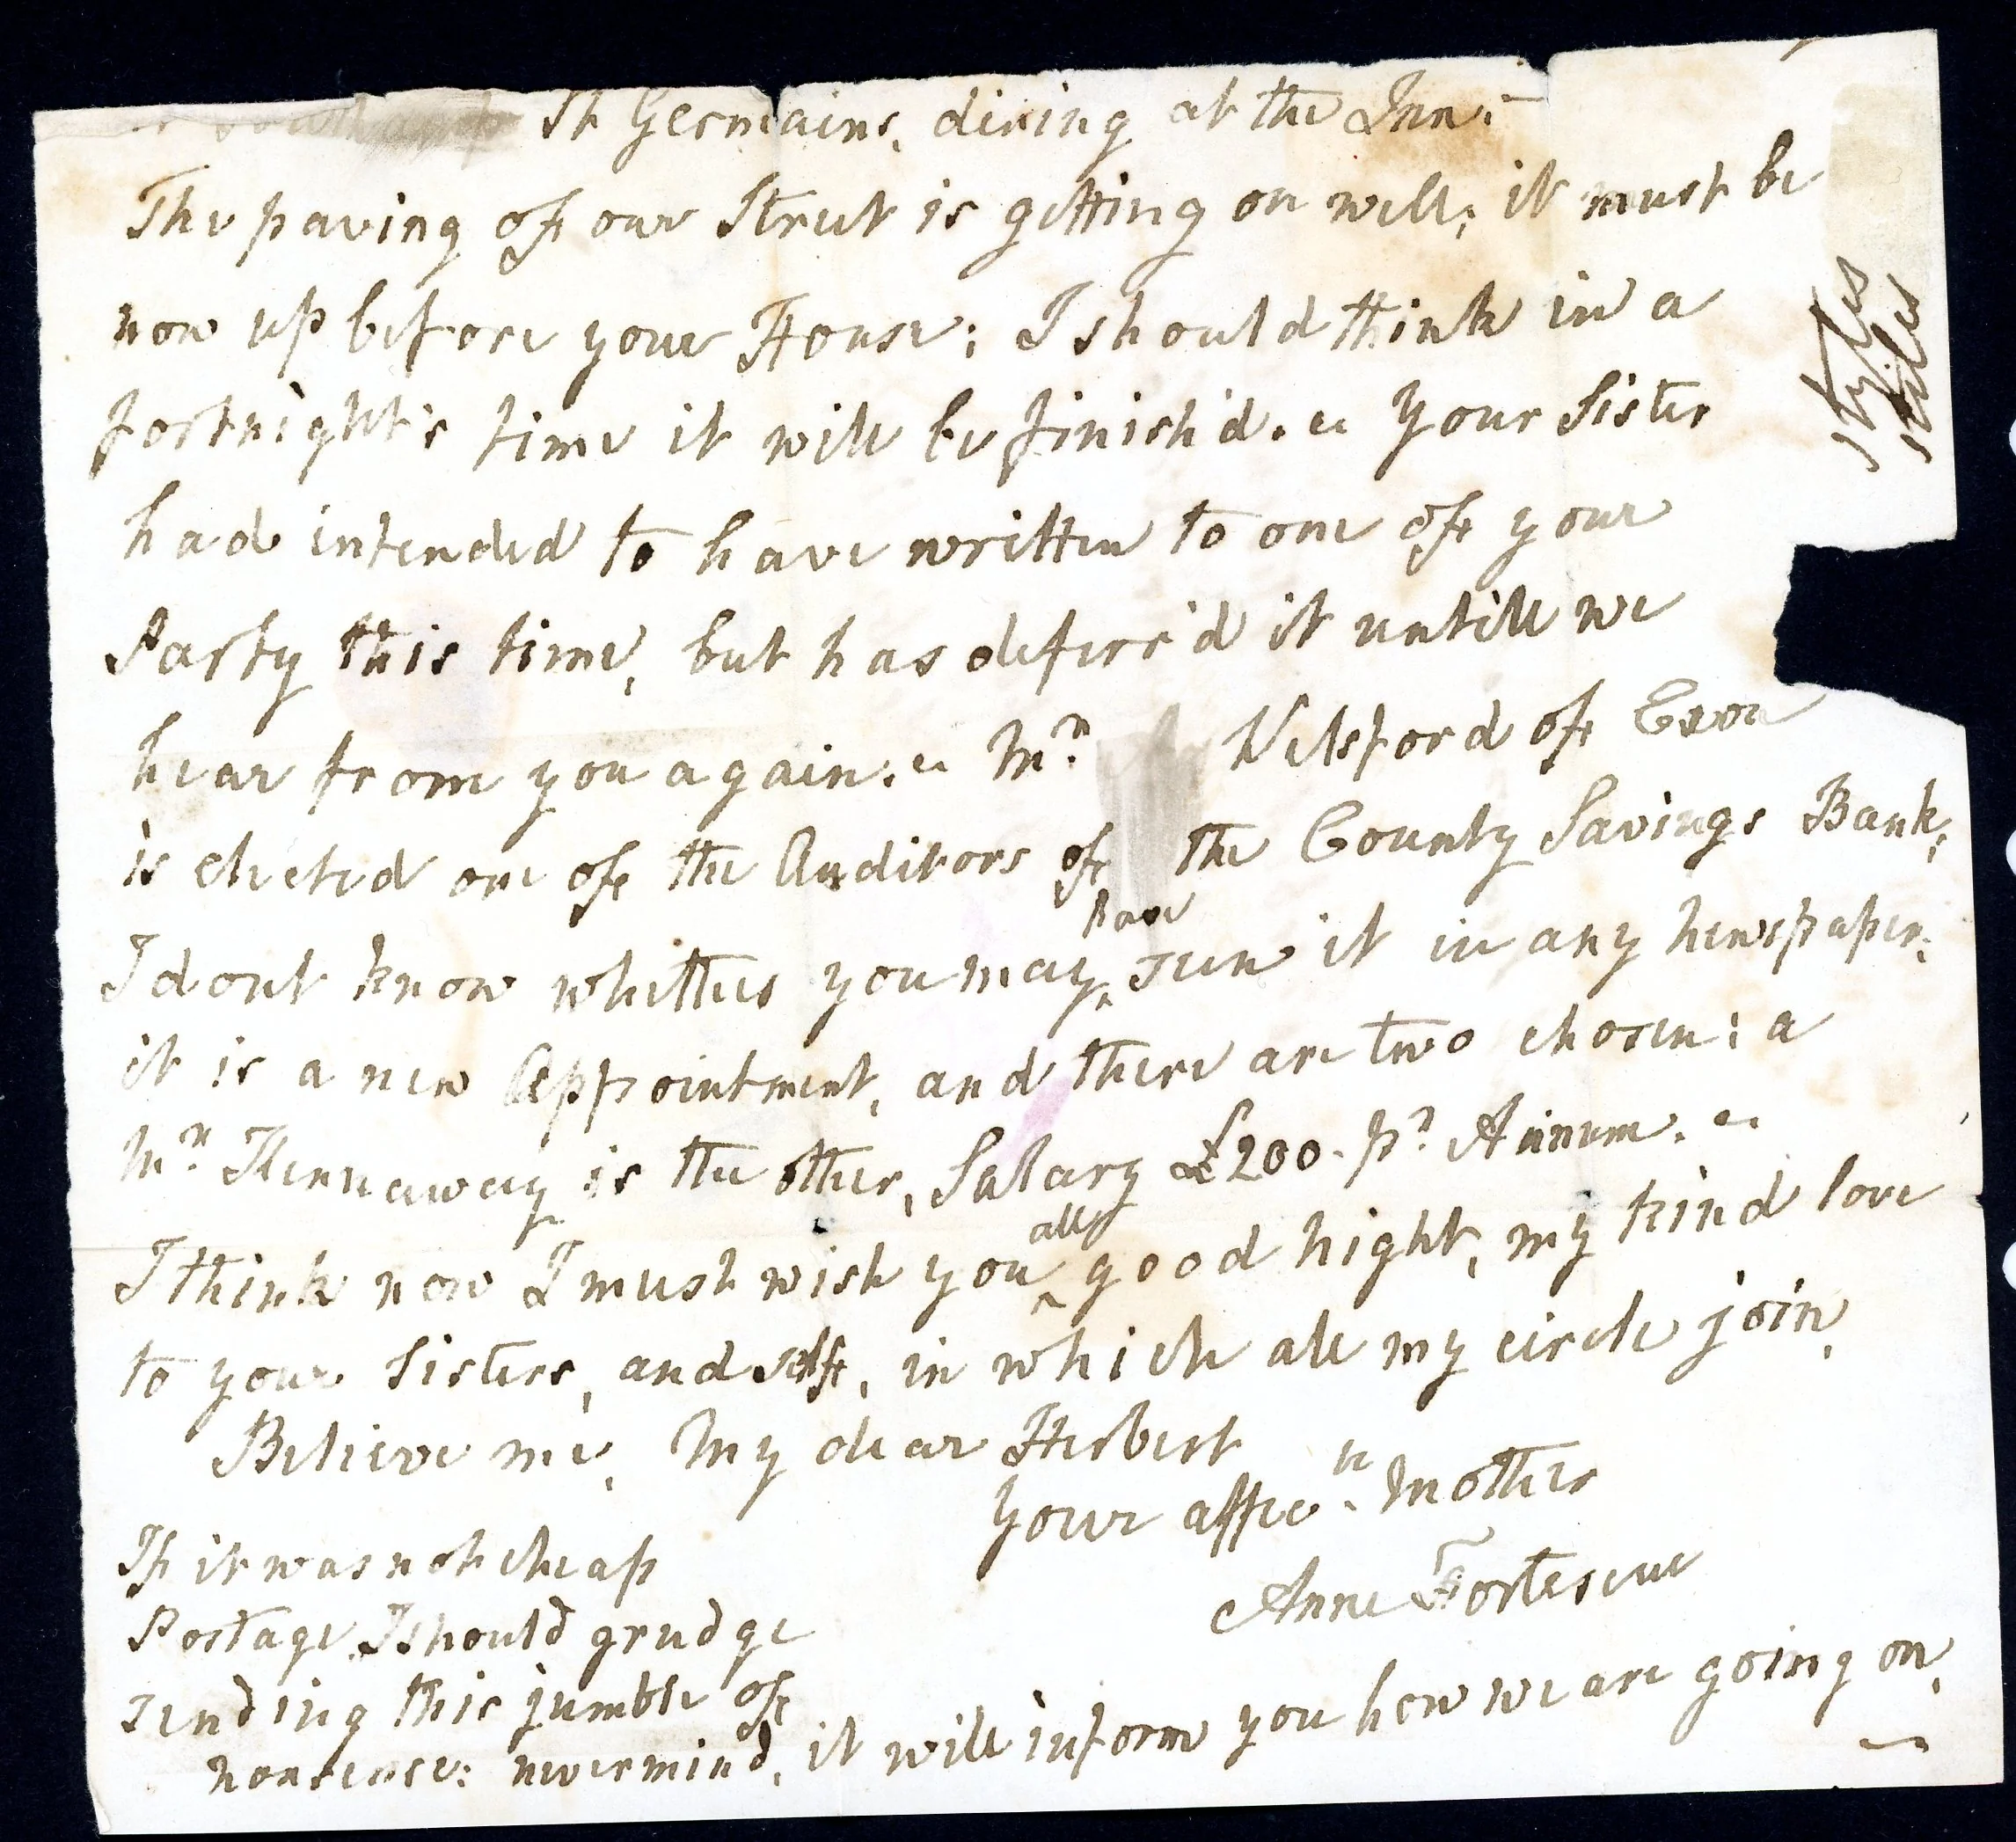 St Germains, dining at the Inn.
The paving of our Street is getting on well; it must be
now up before your House; I should think in a
fortnight's time it will be finish'd. Your Sister
had intended to have written to one of your
Party this time, but has deferr'd it untill we
hear from you again. Mr. Welsford of Exon
is elected one of the Auditors of the County Savings Bank;
I dont know whether you may have seen it in any Newspaper.
it is a new Appointment, and there are two chosen; a
Mr. Kennaway is the other, Salary £200. pr. Annum.
I think now I must wish you all good night, my kind love
to your Sisters, and self, in which all my circle join.
Believe me, My dear Herbert
Your affecte. Mother
Anne Fortescue
If it was not cheap
Postage I should grudge
sending this jumble of
nonsense: nevermind, it will inform you how we are going on.
styles
stiles